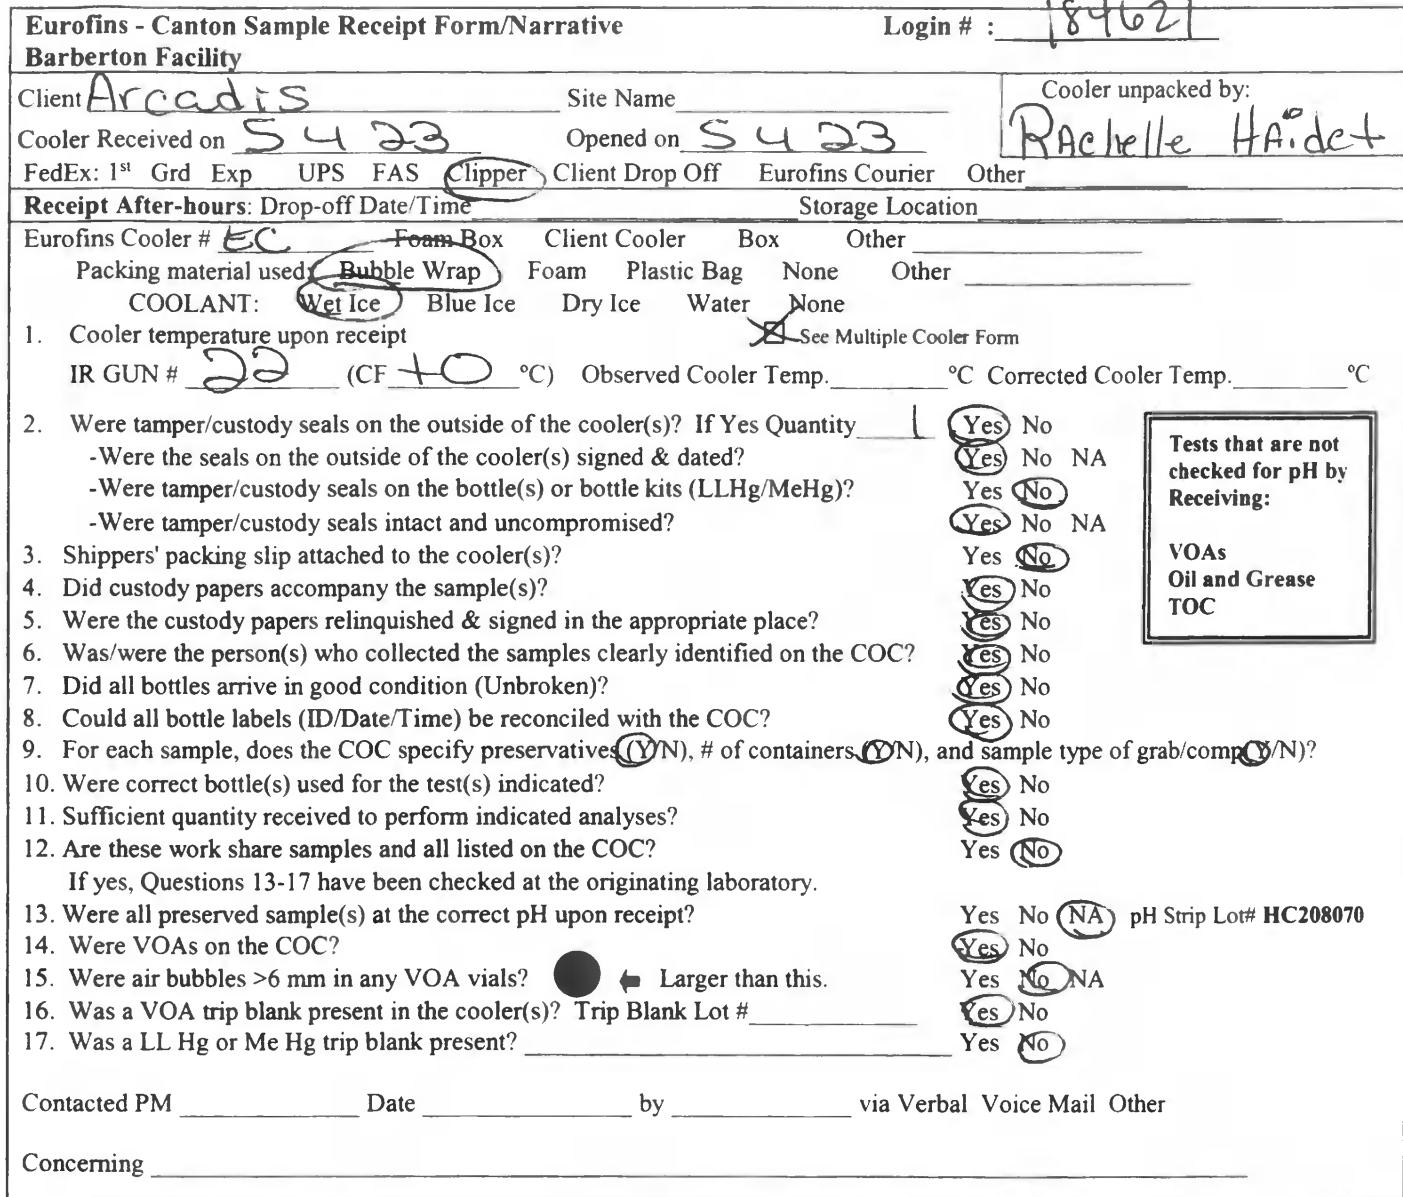 Eurofins - Canton Sample Receipt Form/Narrative Login # : 184621
Barberton Facility
Client Arcadis Site Name Cooler unpacked by:
Cooler Received on 5 4 23 Opened on 5 4 23 RAchelle HAidet
FedEx: 1st Grd Exp UPS FAS Clipper Client Drop Off Eurofins Courier Other
Receipt After-hours: Drop-off Date/Time Storage Location
Eurofins Cooler # EC Foam Box Client Cooler Box Other
Packing material used: Bubble Wrap Foam Plastic Bag None Other
COOLANT: Wet Ice Blue Ice Dry Ice Water None
1. Cooler temperature upon receipt See Multiple Cooler Form
IR GUN # 22 (CF +0 °C) Observed Cooler Temp. °C Corrected Cooler Temp. °C
2. Were tamper/custody seals on the outside of the cooler(s)? If Yes Quantity 1 Yes No
-Were the seals on the outside of the cooler(s) signed & dated? Yes No NA
-Were tamper/custody seals on the bottle(s) or bottle kits (LLHg/MeHg)? Yes No
-Were tamper/custody seals intact and uncompromised? Yes No NA
3. Shippers' packing slip attached to the cooler(s)? Yes No
4. Did custody papers accompany the sample(s)? Yes No
5. Were the custody papers relinquished & signed in the appropriate place? Yes No
6. Was/were the person(s) who collected the samples clearly identified on the COC? Yes No
7. Did all bottles arrive in good condition (Unbroken)? Yes No
8. Could all bottle labels (ID/Date/Time) be reconciled with the COC? Yes No
Tests that are not
checked for pH by
Receiving:
VOAs
Oil and Grease
TOC
9. For each sample, does the COC specify preservatives (Y/N), # of containers (Y/N), and sample type of grab/comp (Y/N)?
10. Were correct bottle(s) used for the test(s) indicated? Yes No
11. Sufficient quantity received to perform indicated analyses? Yes No
12. Are these work share samples and all listed on the COC? Yes No
If yes, Questions 13-17 have been checked at the originating laboratory.
13. Were all preserved sample(s) at the correct pH upon receipt? Yes No NA pH Strip Lot# HC208070
14. Were VOAs on the COC? Yes No
15. Were air bubbles >6 mm in any VOA vials? Larger than this. Yes No NA
16. Was a VOA trip blank present in the cooler(s)? Trip Blank Lot # Yes No
17. Was a LL Hg or Me Hg trip blank present? Yes No
Contacted PM Date by via Verbal Voice Mail Other
Concerning